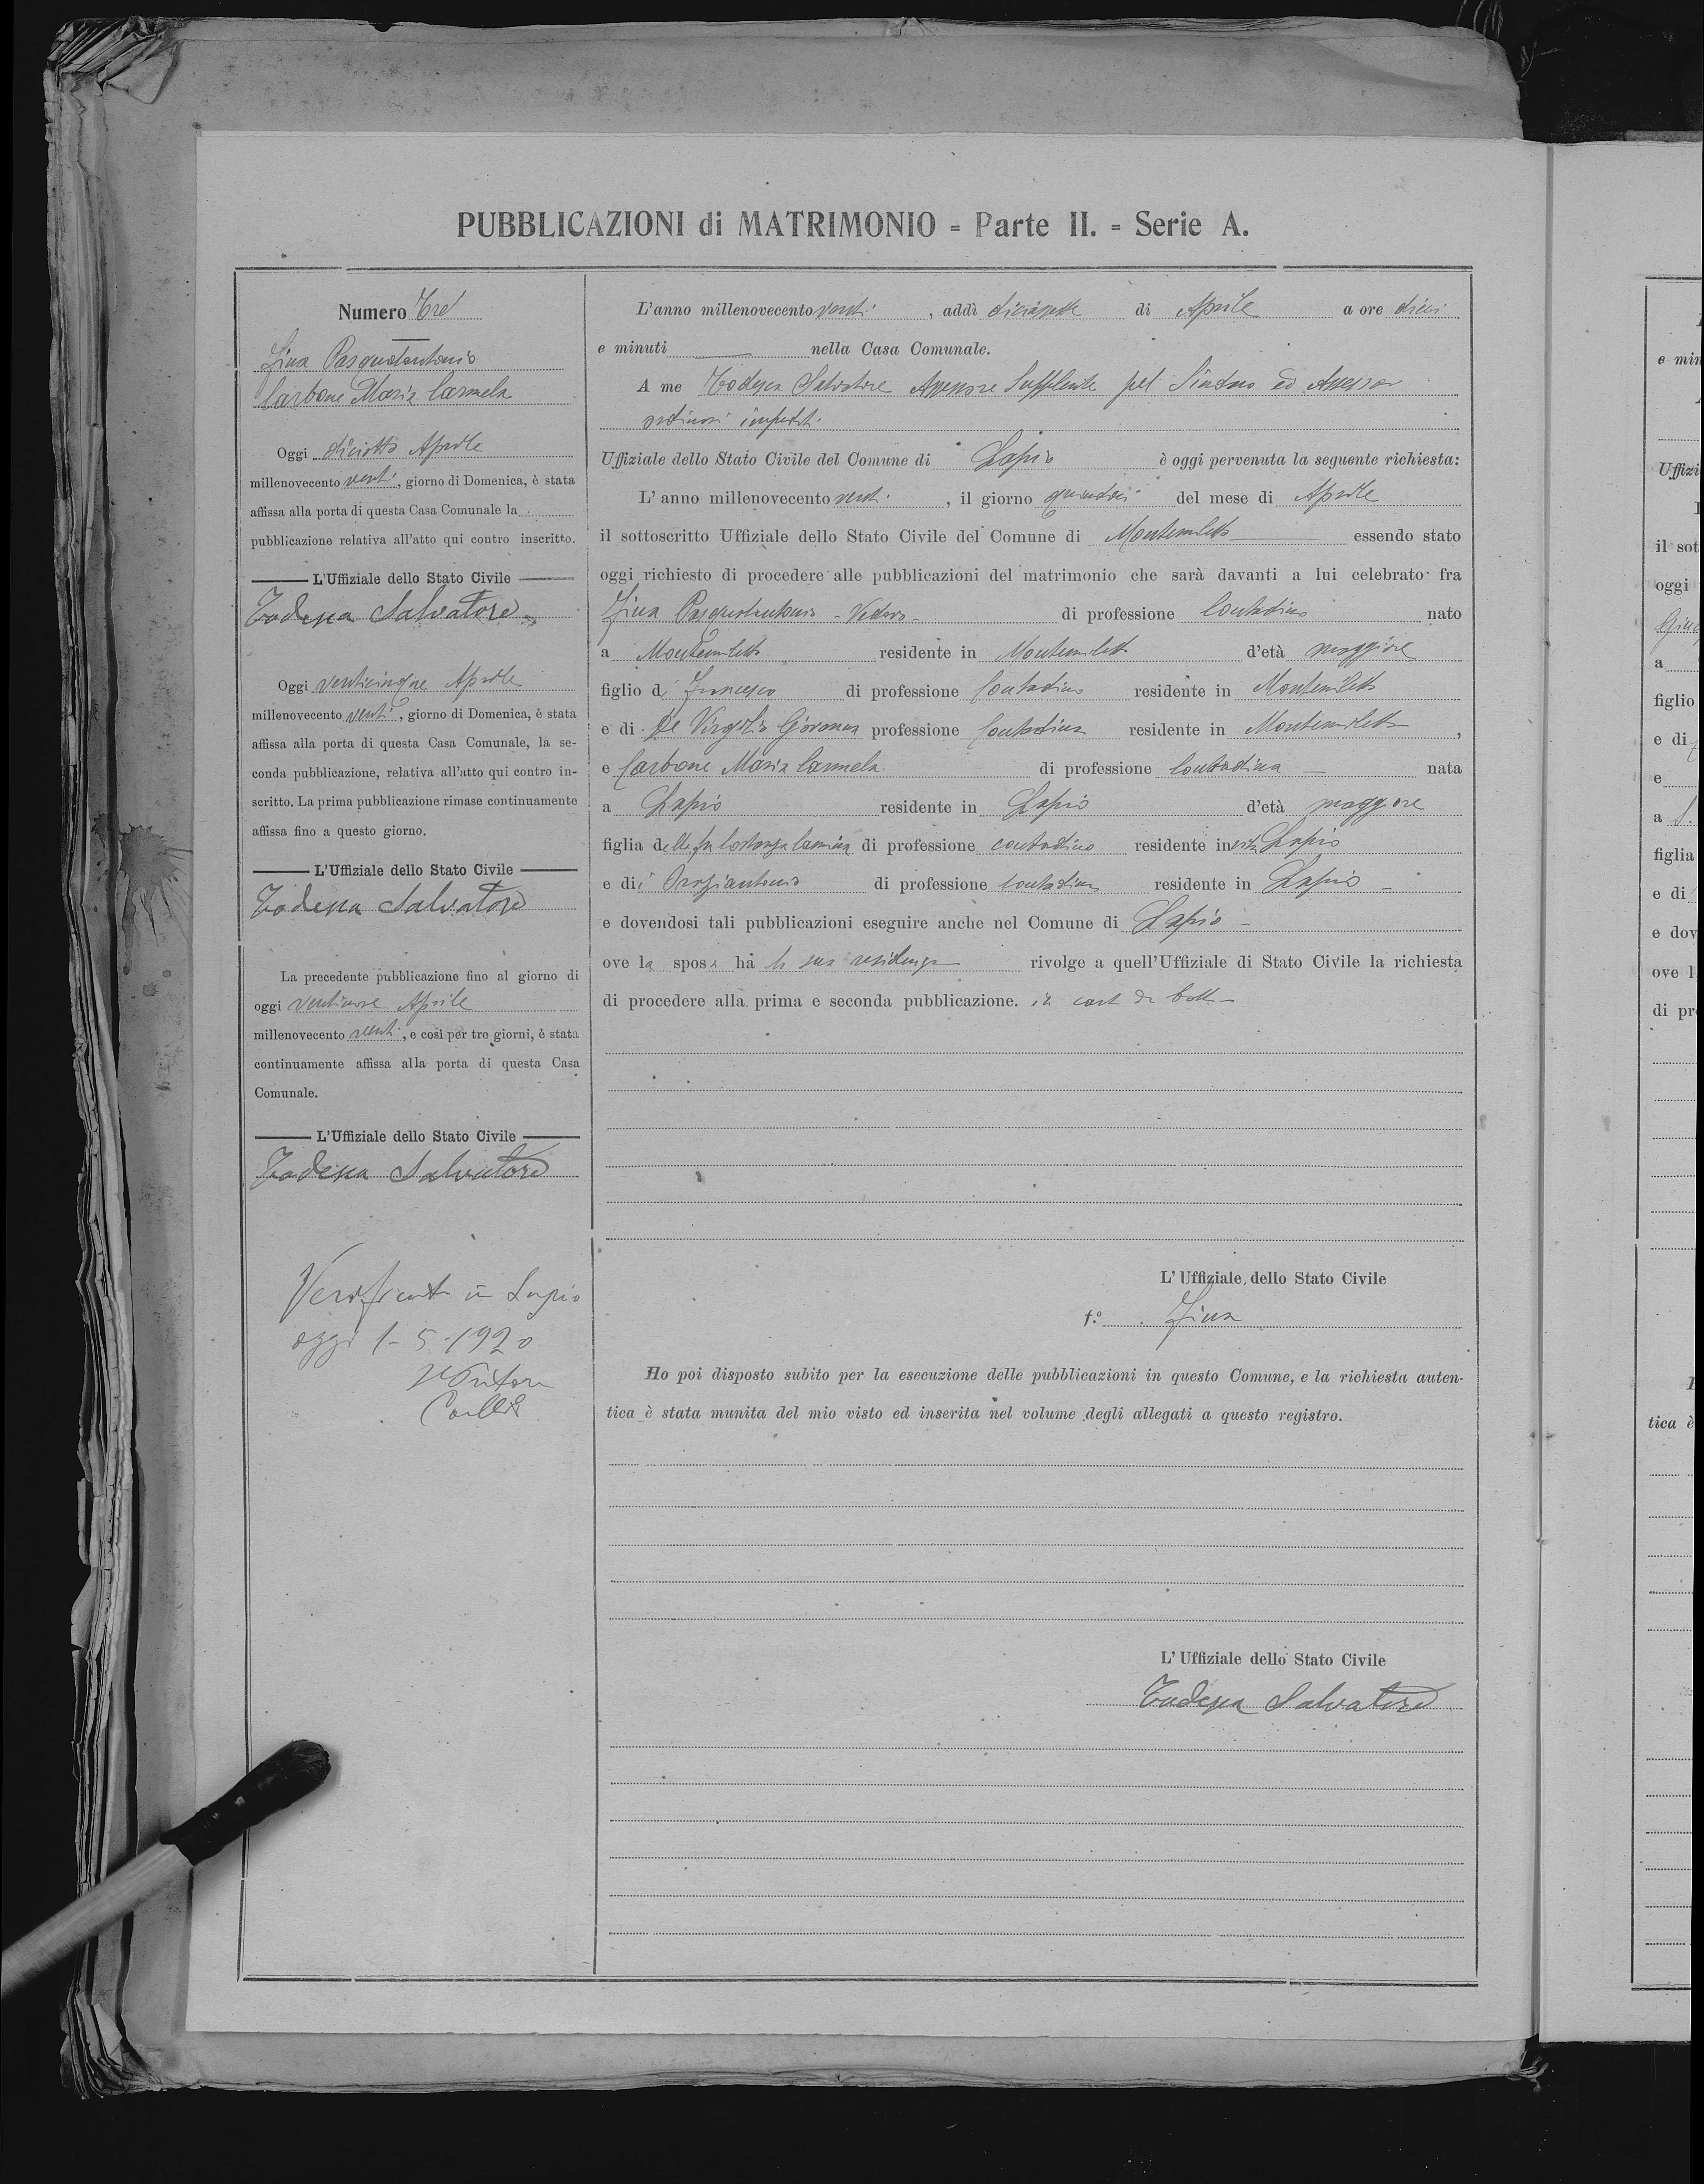 PUBBLICAZIONI di MATRIMONIO = Parte II. = Serie A.
Numero Tre
Zina Pasqualantonio
Carbone Maria Carmela
Oggi diciotto Aprile
millenovecento venti, giorno di Domenica, è stata
affissa alla porta di questa Casa Comunale la
pubblicazione relativa all'atto qui contro inscritto.
L'Uffiziale dello Stato Civile
Todesca Salvatore
Oggi venticinque Aprile
millenovecento venti, giorno di Domenica, è stata
affissa alla porta di questa Casa Comunale, la se-
conda pubblicazione, relativa all'atto qui contro in-
scritto. La prima pubblicazione rimase continuamente
affissa fino a questo giorno.
L'Uffiziale dello Stato Civile
Todesca Salvatore
La precedente pubblicazione fino al giorno di
oggi ventinove Aprile
millenovecento venti, e così per tre giorni, è stata
continuamente affissa alla porta di questa Casa
Comunale.
L'Uffiziale dello Stato Civile
Todesca Salvatore
Verificato in Lapio
oggi 1-5-1920
L'anno millenovecento venti, addì diciassette di Aprile a ore dieci
e minuti nella Casa Comunale.
A me Todesca Salvatore Assessore Supplente pel Sindaco ed Assessori
ordinari impediti
Uffiziale dello Stato Civile del Comune di Lapio è oggi pervenuta la seguente richiesta:
L'anno millenovecento venti, il giorno quindici del mese di Aprile
il sottoscritto Uffiziale dello Stato Civile del Comune di Montemiletto essendo stato
oggi richiesto di procedere alle pubblicazioni del matrimonio che sarà davanti a lui celebrato fra
Zina Pasqualantonio - Vedovo - di professione Contadino nato
a Montemiletto residente in Montemiletto d'età maggiore
figlio di Francesco di professione Contadino residente in Montemiletto
e di De Virgilio Giovanna professione Contadina residente in Montemiletto,
e Carbone Maria Carmela di professione Contadina nata
a Lapio residente in Lapio d'età maggiore
figlia della fu Costanza di professione contadina residente in vita Lapio
e di Oraziantonio di professione contadino residente in Lapio -
e dovendosi tali pubblicazioni eseguire anche nel Comune di Lapio -
ove la sposa ha la sua residenza rivolge a quell'Uffiziale di Stato Civile la richiesta
di procedere alla prima e seconda pubblicazione. in cart da boll -
L'Uffiziale dello Stato Civile
f.º Zina
Ho poi disposto subito per la esecuzione delle pubblicazioni in questo Comune, e la richiesta auten-
tica è stata munita del mio visto ed inserita nel volume degli allegati a questo registro.
L'Uffiziale dello Stato Civile
Todesca Salvatore
e min
Uffizi
il sot
oggi
a
figlio
e di
e
a
figlia
e di
e dov
ove l
di pr
tica è